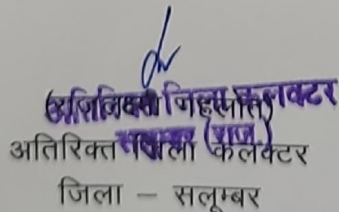 अतिरिक्त जिला कलक्टर
(राज)
अतिरिक्त जिला कलेक्टर
जिला – सलूम्बर